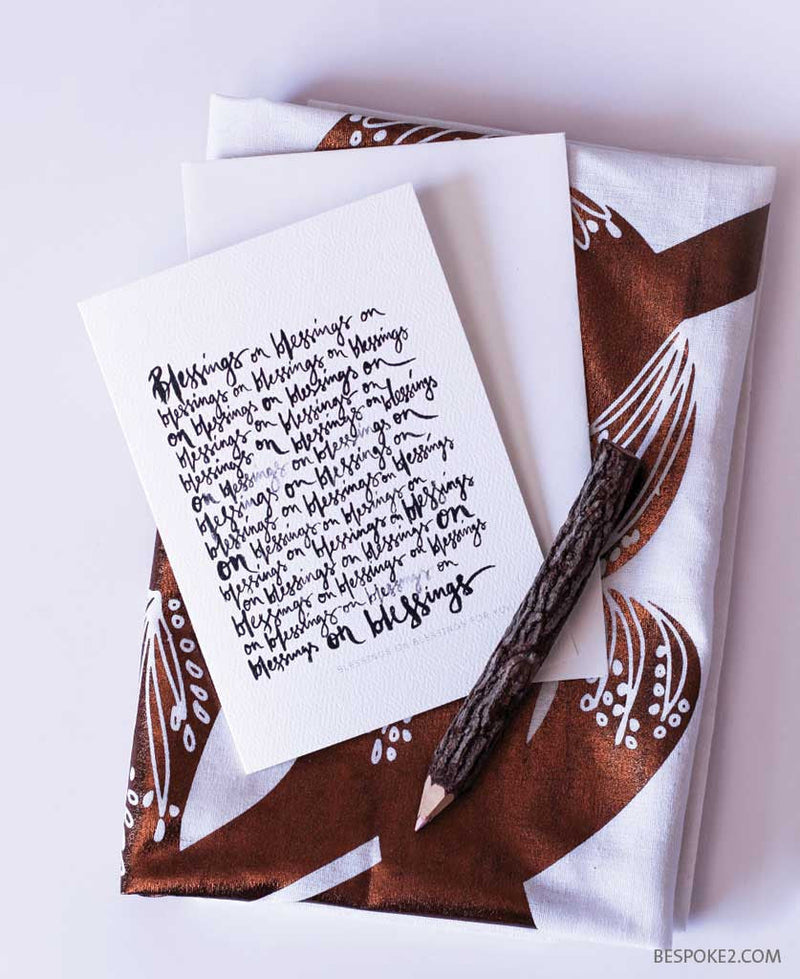 Blessings on blessings on
blessings on blessings on blessings
on blessings on blessings on
blessings on blessings on
blessings on blessings on blessings
on blessings on blessings on
blessings on blessings on
blessings on blessings on blessings
on blessings on blessings on
blessings on blessings on blessings
on blessings on blessings on
blessings on blessings on blessings
on blessings on blessings on
blessings on blessings
BLESSINGS ON BLESSINGS FOR YOU
BESPOKE2.COM